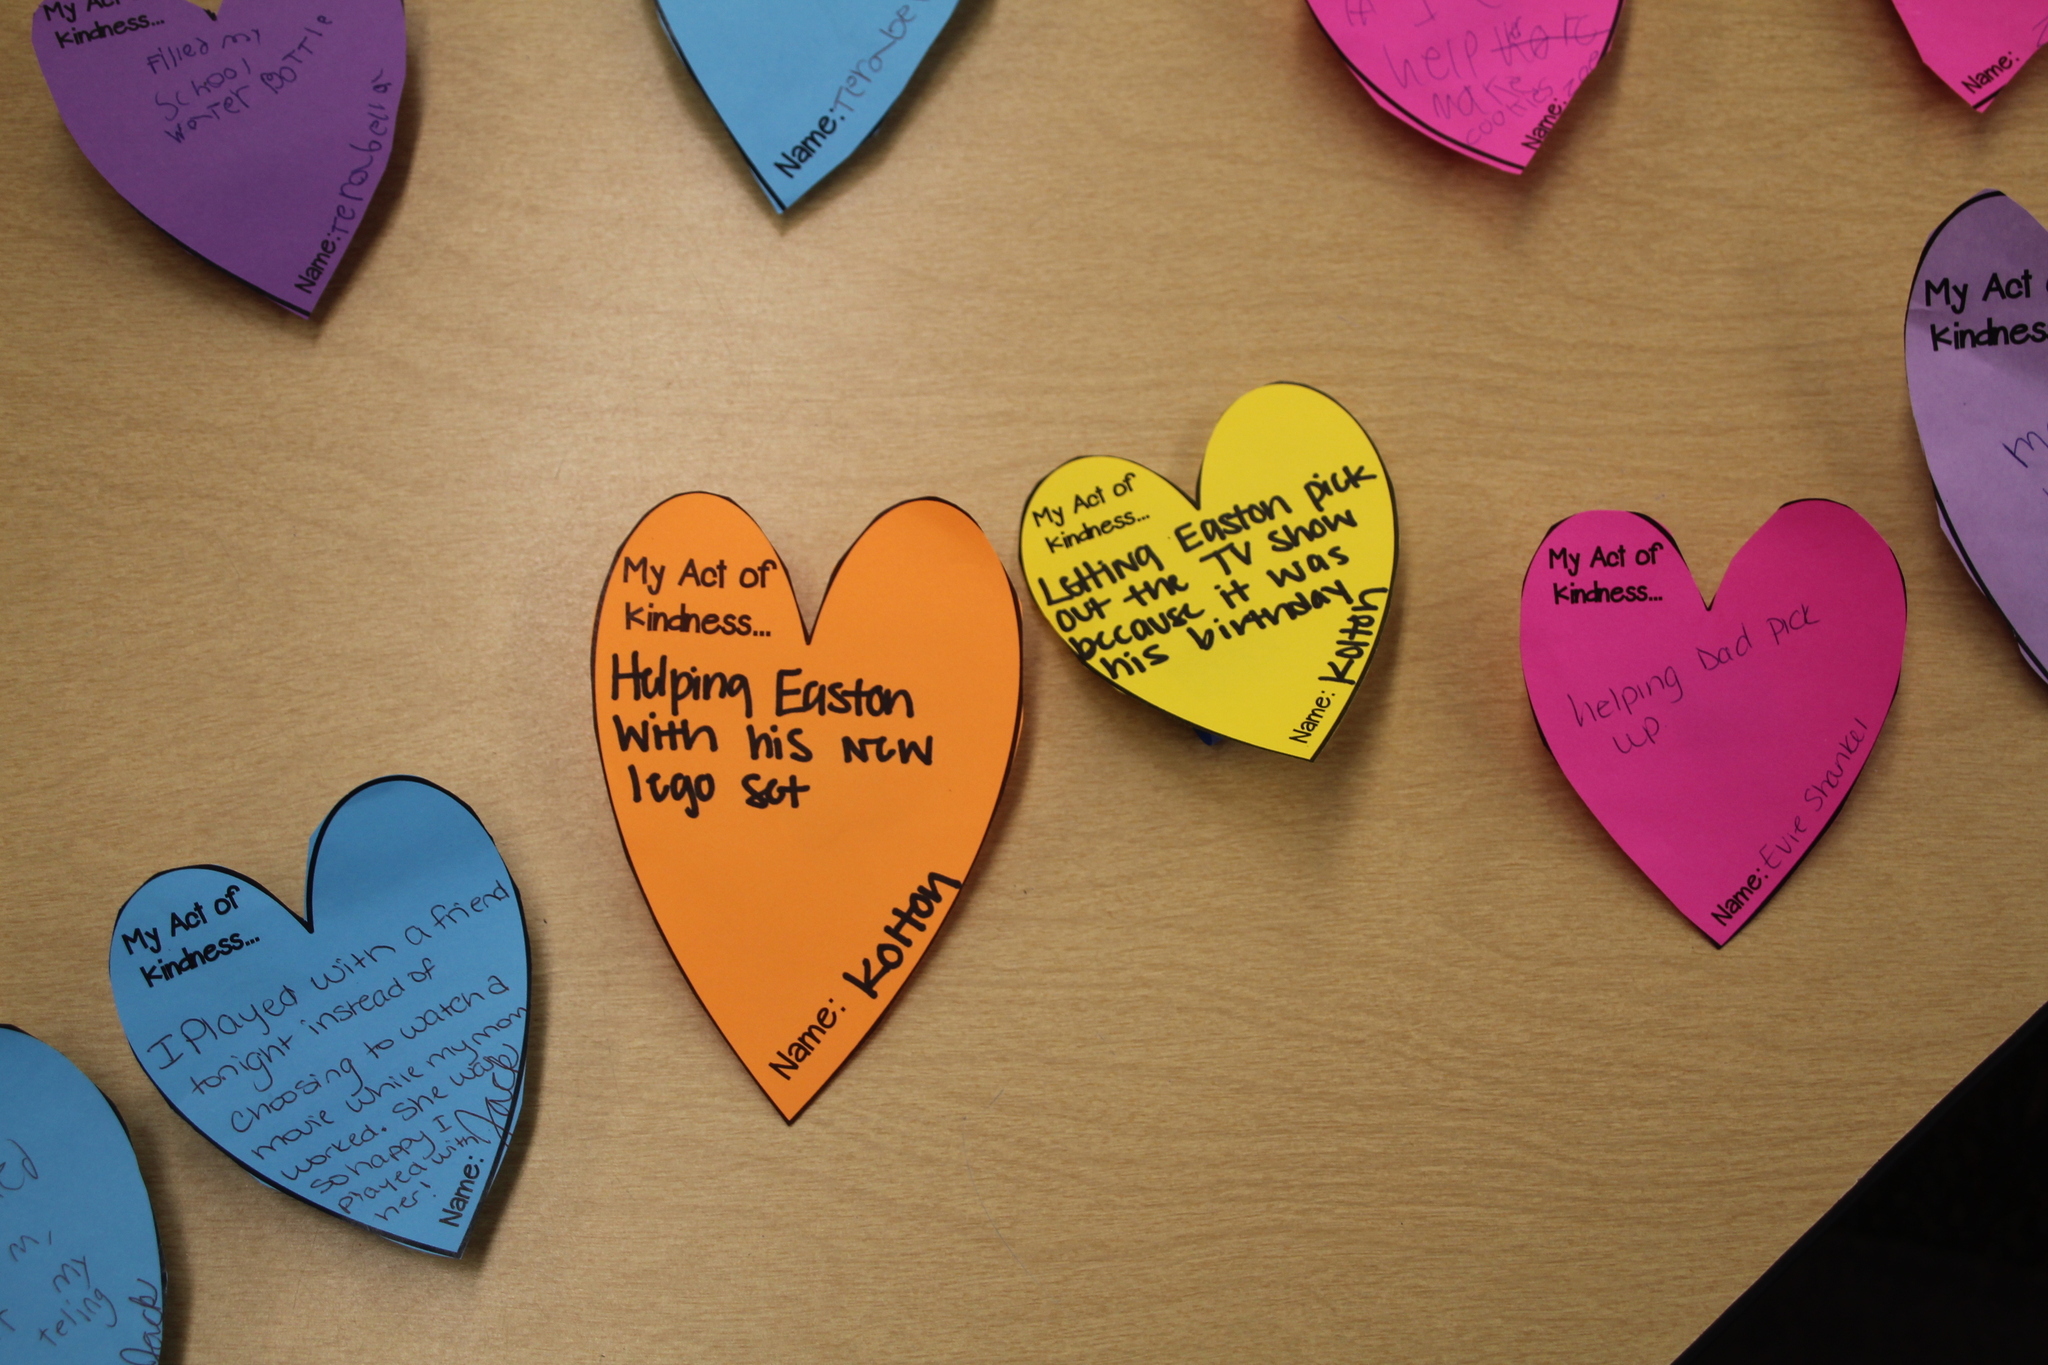 My Act of
Kindness...
Filled my
School
water Bottle
Name:
Name:
help
make
cookies
Name:
Name:
My Act
Kindness
My Act of
Kindness...
Letting Easton pick
out the TV show
because it was
his birthday
Name: Kolton
My Act of
Kindness...
Helping Easton
With his new
lego set
Name: Kolton
My Act of
Kindness...
helping Dad pick
up
Name: Evie Shankel
My Act of
Kindness...
I Played with a friend
tonight instead of
choosing to watch a
movie while my mom
worked. She was
so happy I
played with
her!
Name: Jack
my
teling
Jack